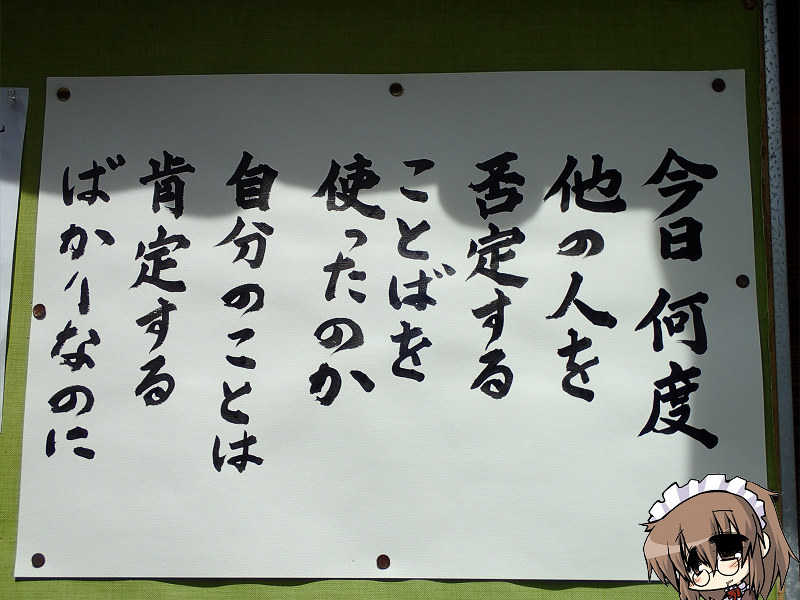 今日 何度
他の人を
否定する
ことばを
使ったのか
自分のことは
肯定する
ばかりなのに